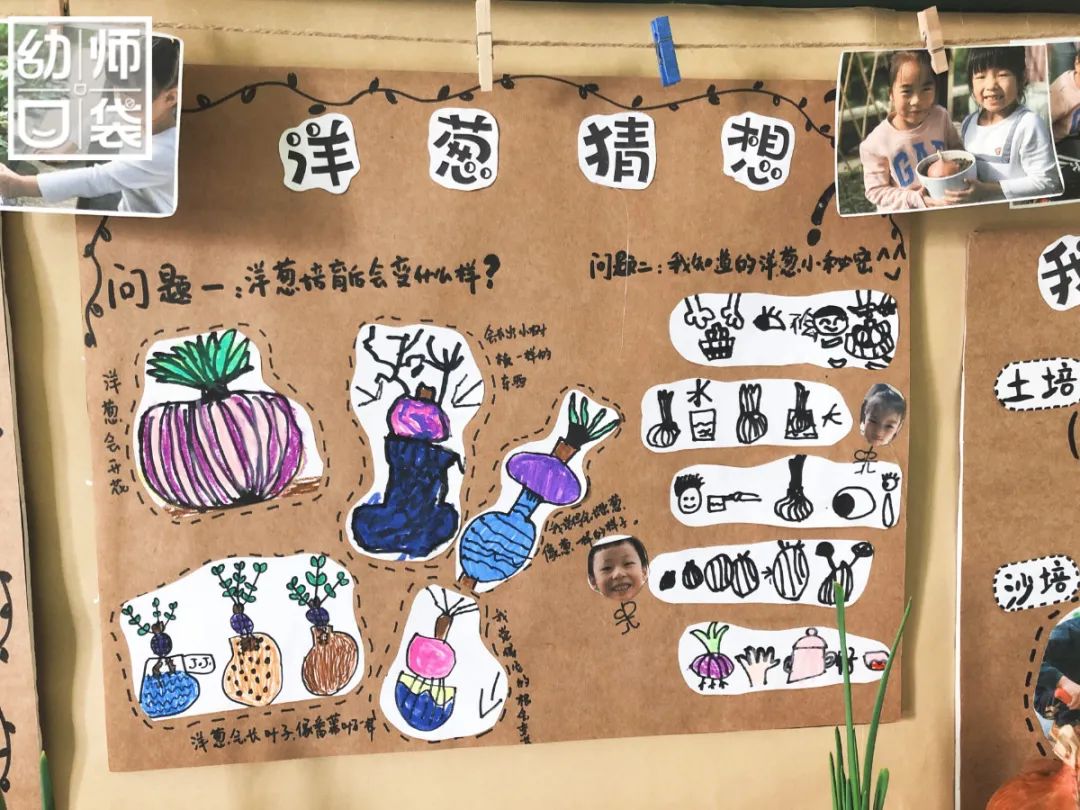 幼师口袋
洋葱猜想
问题一：洋葱培育后会变什么样？
问题二：我知道的洋葱小秘密
洋葱会开花
会长出小树
枝一样的
东西
水
大
我觉得会
像葱一样的样子。
J.J.
洋葱会长叶子，像番薯叶一样
我觉得它的根会变
GAP
我
土培
沙培